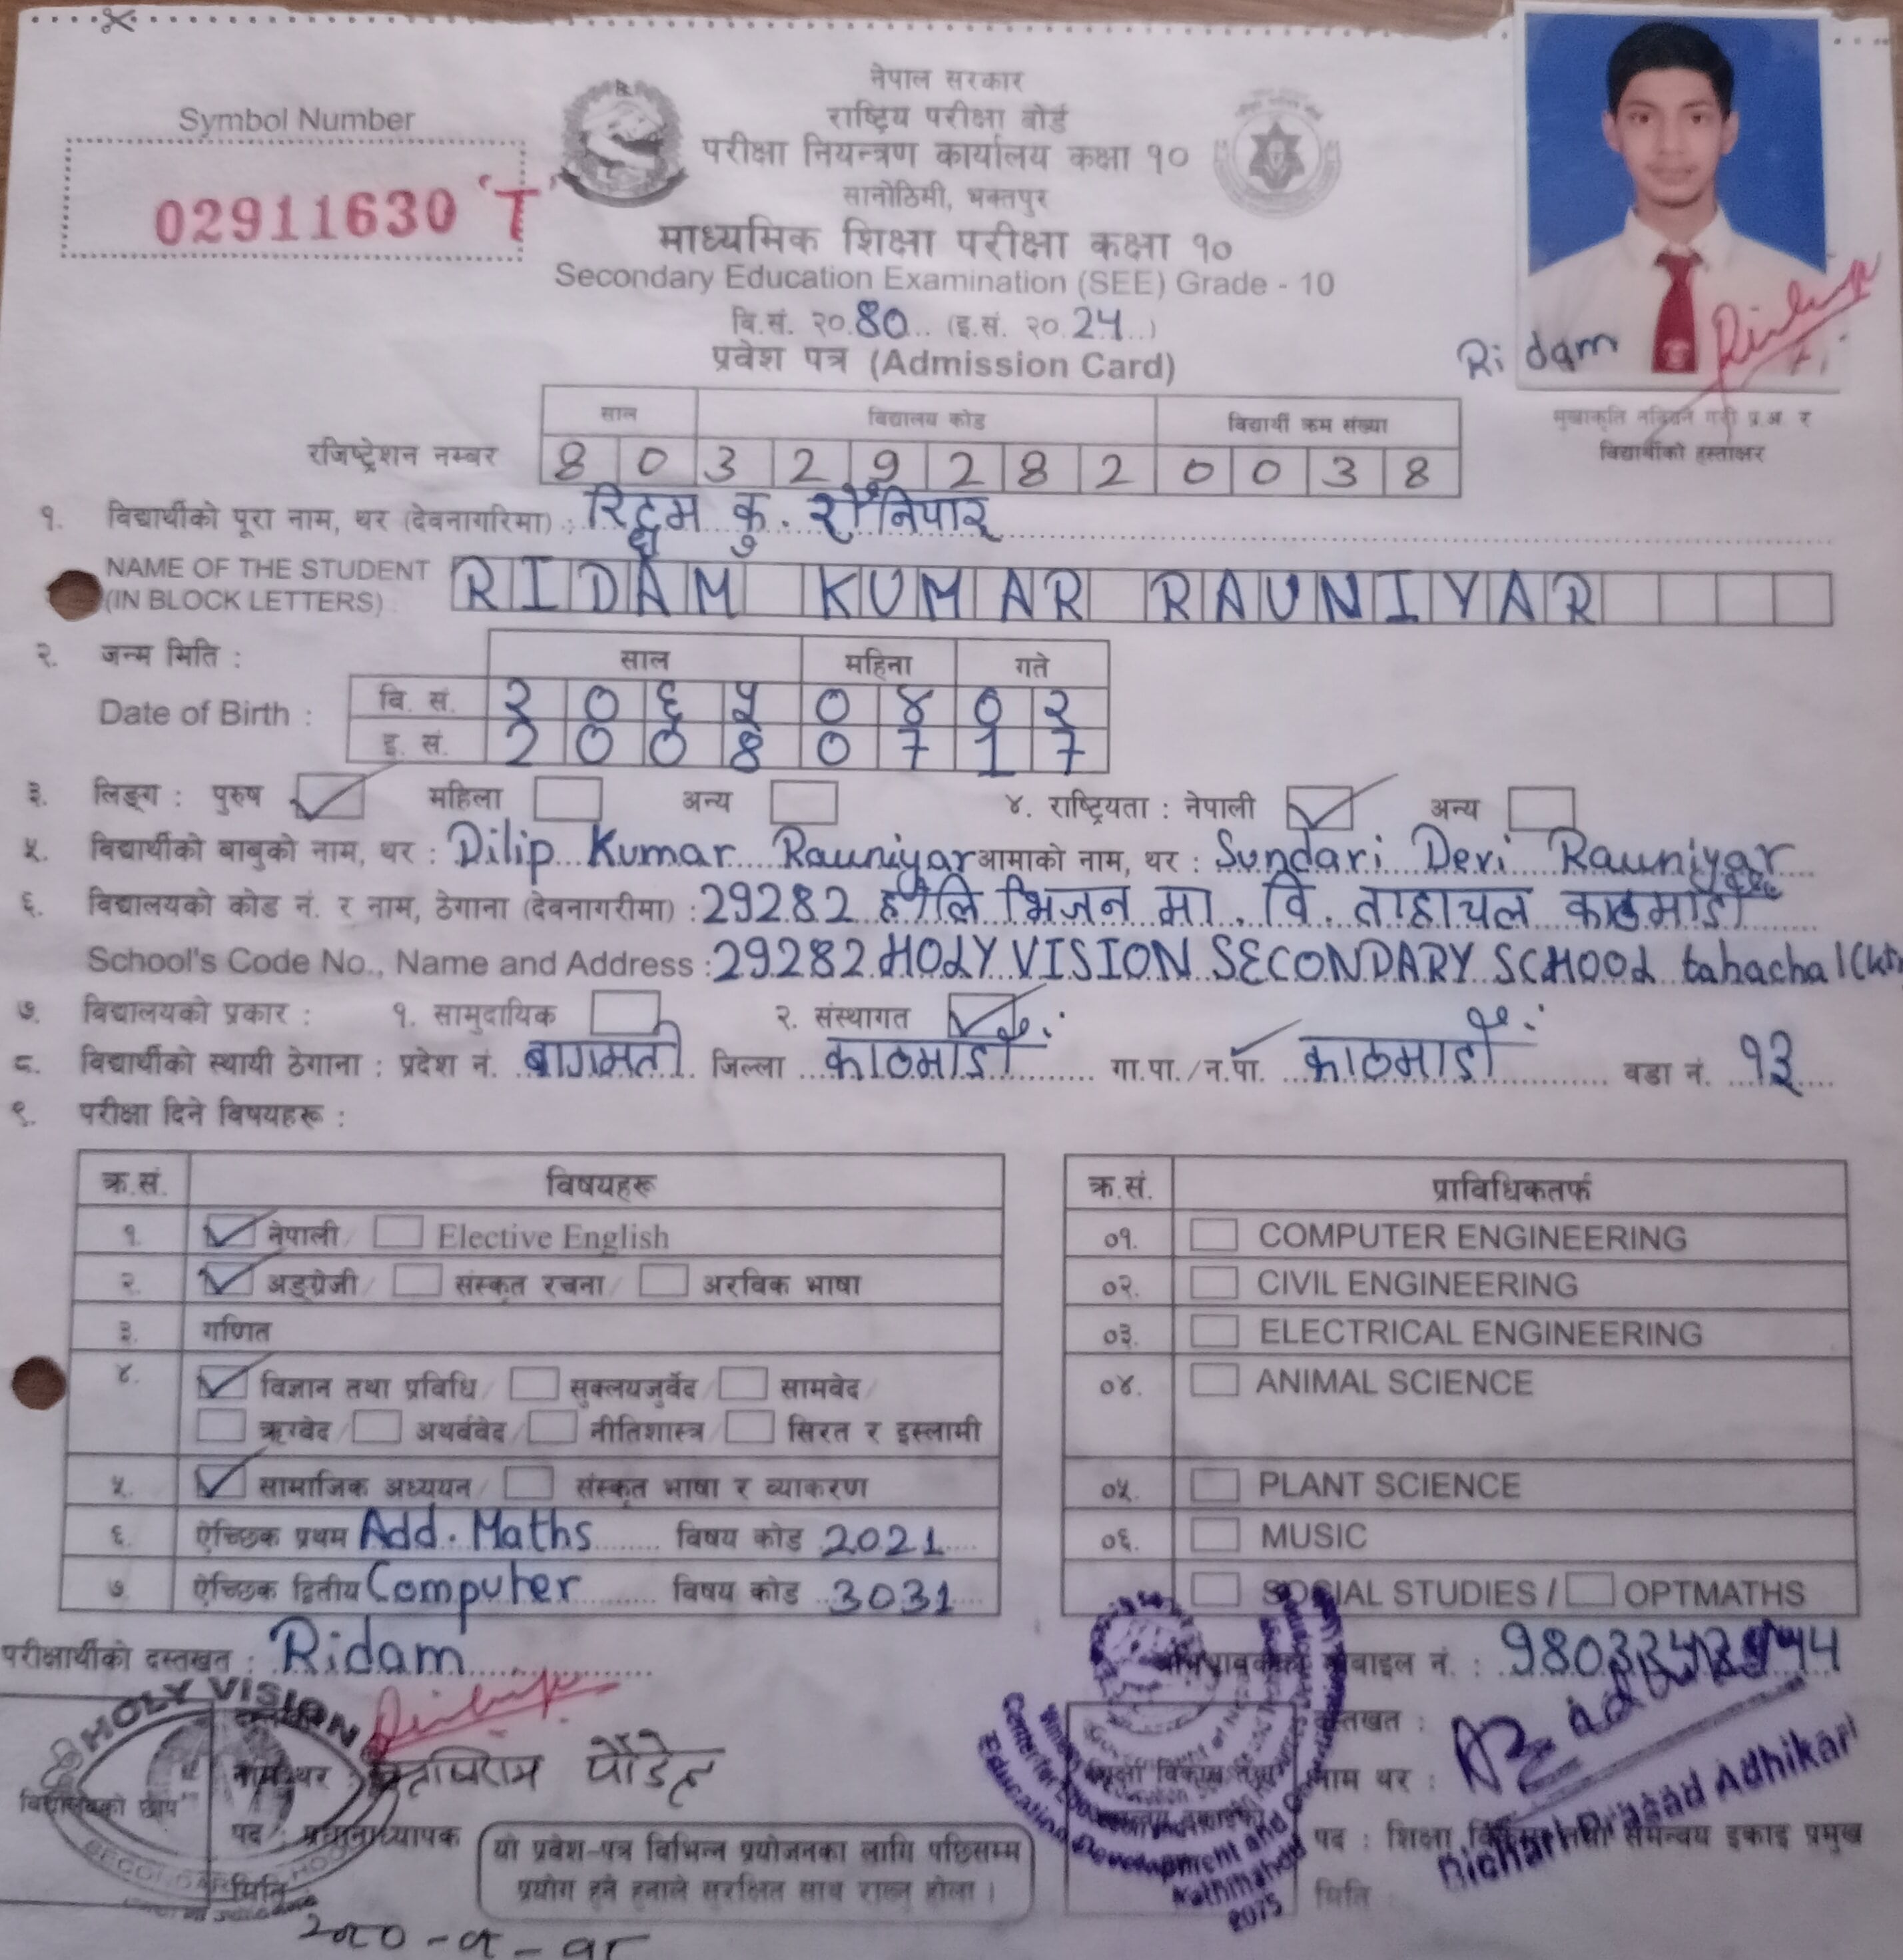 नेपाल सरकार
राष्ट्रिय परीक्षा बोर्ड
परीक्षा नियन्त्रण कार्यालय कक्षा १०
सानोठिमी, भक्तपुर
Symbol Number
02911630 'T'
माध्यमिक शिक्षा परीक्षा कक्षा १०
Secondary Education Examination (SEE) Grade - 10
वि.सं. २०80 (इ.सं. २०24)
प्रवेश पत्र (Admission Card)
Ridam
मुखाकृति नछिप्ने गरी प्र.अ. र
विद्यार्थीको हस्ताक्षर
साल विद्यालय कोड विद्यार्थी क्रम संख्या
रजिष्ट्रेशन नम्बर 8 0 3 2 9 2 8 2 0 0 3 8
१. विद्यार्थीको पूरा नाम, थर (देवनागरिमा) : कु. रौनियार
NAME OF THE STUDENT
(IN BLOCK LETTERS) RIDAM KUMAR RAUNIYAR
२. जन्म मिति :
साल महिना गते
Date of Birth :
वि. सं. २ ० ६ ५ ० ४ ० २
इ. सं. 2 0 0 8 0 7 1 7
३. लिङ्ग : पुरुष महिला अन्य ४. राष्ट्रियता : नेपाली अन्य
५. विद्यार्थीको बाबुको नाम, थर : Dilip Kumar Rauniyar आमाको नाम, थर : Sundari Devi Rauniyar
६. विद्यालयको कोड नं. र नाम, ठेगाना (देवनागरीमा) : 29282 होलि भिजन मा. वि. ताहाचल काठमाडौं
School's Code No., Name and Address : 29282 HOLY VISION SECONDARY SCHOOL tahachal
७. विद्यालयको प्रकार : १. सामुदायिक २. संस्थागत
८. विद्यार्थीको स्थायी ठेगाना : प्रदेश नं. बागमती जिल्ला काठमाडौं गा.पा./न.पा. काठमाडौं वडा नं. १३
९. परीक्षा दिने विषयहरू :
क्र.सं. विषयहरू
१. नेपाली/ Elective English
२. अङ्ग्रेजी/ संस्कृत रचना/ अरविक भाषा
३. गणित
४. विज्ञान तथा प्रविधि/ सुक्लयजुर्वेद/ सामवेद/
ऋग्वेद/ अथर्ववेद/ नीतिशास्त्र/ सिरत र इस्लामी
५. सामाजिक अध्ययन/ संस्कृत भाषा र व्याकरण
६. ऐच्छिक प्रथम Add. Maths विषय कोड 2021
७. ऐच्छिक द्वितीय Computer विषय कोड 3031
क्र.सं. प्राविधिकतर्फ
०१. COMPUTER ENGINEERING
०२. CIVIL ENGINEERING
०३. ELECTRICAL ENGINEERING
०४. ANIMAL SCIENCE
०५. PLANT SCIENCE
०६. MUSIC
SOCIAL STUDIES / OPTMATHS
परीक्षार्थीको दस्तखत : Ridam
मोबाइल नं. :
HOLY VISION
नाम थर : पौडेल
विद्यालयको छाप
पद : प्रधानाध्यापक
मिति
यो प्रवेश-पत्र विभिन्न प्रयोजनका लागि पछिसम्म
प्रयोग हुने हुनाले सुरक्षित साथ राख्नु होला ।
Education Development and
Kathmandu
2075
दस्तखत :
नाम थर :
Prasad Adhikari
पद : शिक्षा विकास तथा समन्वय इकाइ प्रमुख
मिति